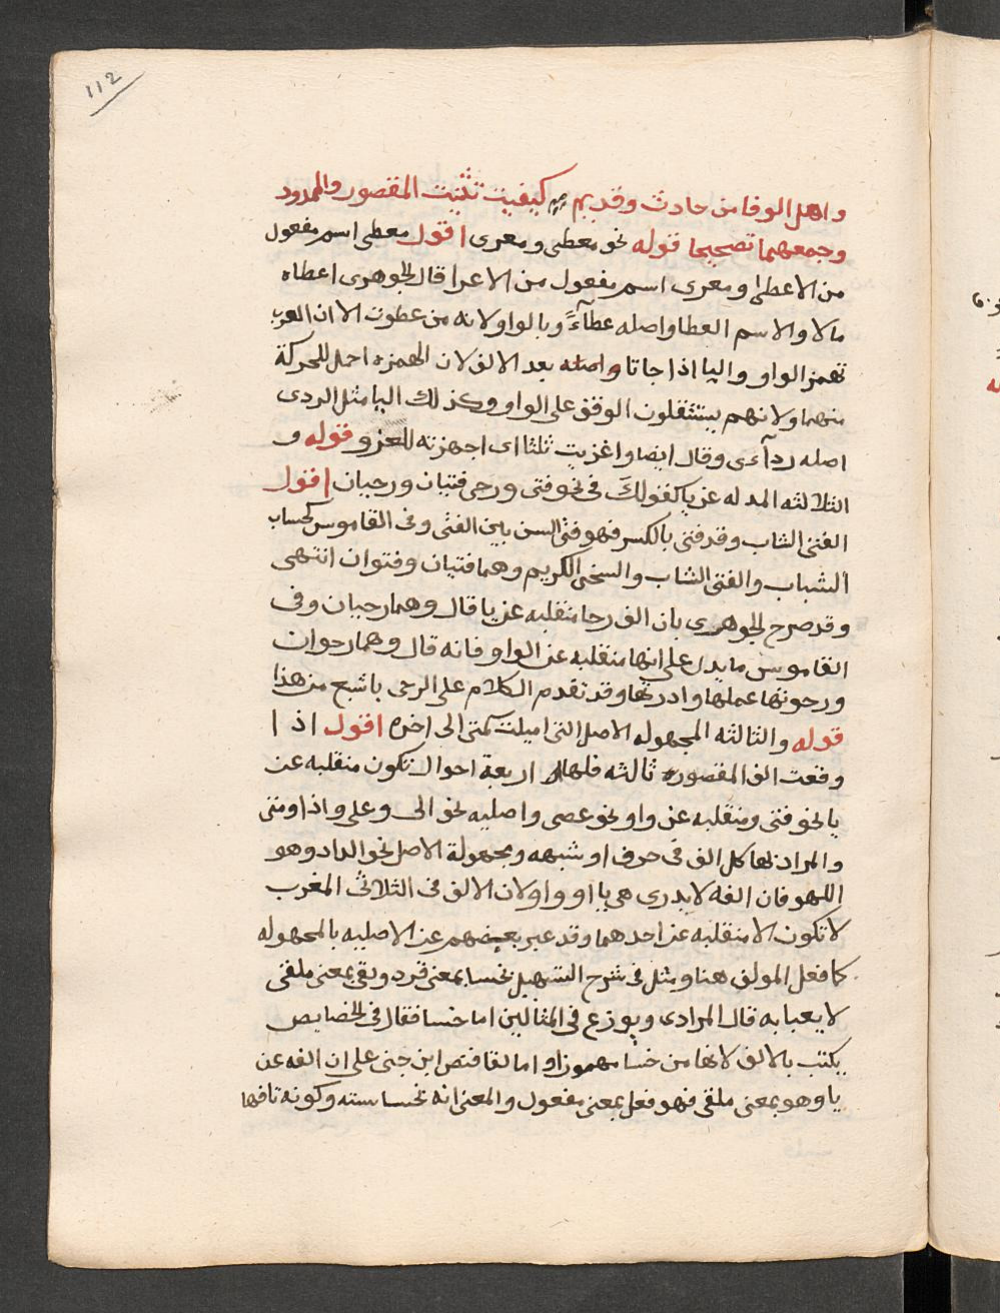 112
واهل الوفا من حادث وقديم كيفيت تثنيت المقصور والممدود
وجمعهما تصحيحا قوله نحو معطى ومعرى اقول معطى اسم مفعول
من الاعطا ومعرى اسم مفعول من الاعرا قال الجوهرى اعطاه
مالا والاسم العطا واصله عطآءً وبالواو لانه من عطوت الا ان العرب
تهمز الواو واليا اذا جاتا بعد الالف لان الهمزه احمل للحركة
منهما ولانهم يستثقلون الوقف على الواو وكذلك اليا مثل الردى
اصله ردآءى وقال ايضا واغزيت ثلثا اى اجهزته للغزو قوله و
الثلاثه المدله عن يا كقولك فى نحو فتى ورحى فتيان ورحيان اقول
الفتى الشاب وقد فتى بالكسر فهو فتى السن بين الفتى وفى القاموس كحساب
الشباب والفتى الشاب والسخى الكريم وهما فتيان وفتوان انتهى
وقد صرح الجوهرى بان الف رحا منقلبه عن يا قال وهما رحيان وفى
القاموس ما يدل على انها منقلبه عن الواو فانه قال وهما رحوان
ورحوتها عملها وادرتها وقد تقدم الكلام على الرحى باشبع من هذا
قوله والثالثه المجهوله الاصل التى اميلت كمتى الى اخره اقول اذا
وقعت الف المقصوره ثالثه فلها اربعة احوال تكون منقلبه عن
يا نحو فتى ومنقلبه عن واو نحو عصى واصليه نحو الى وعلى واذا ومتى
والمراد بها كل الف فى حرف او شبهه ومجهولة الاصل نحو الداد وهو
اللهو فان الفه لا يدرى هى يا او واو لان الالف فى الثلاثى المعرب
لا تكون الا منقلبه عن احدهما وقد عبر بعضهم عن الاصليه بالمجهوله
كما فعل المولف هنا ومثل فى شرح التسهيل بخسا بمعنى فرد ولقى بمعنى ملقى
لا يعبا به قال المرادى وبوزع فى المثالين اما خسا فقال فى الخصايص
يكتب بالالف لانها من خسا مهموزا واما لقا فنص ابن جنى على ان الفه عن
يا وهو بمعنى ملقى فهو فعل بمعنى مفعول والمعنى انه لخساسته وكونه تافها